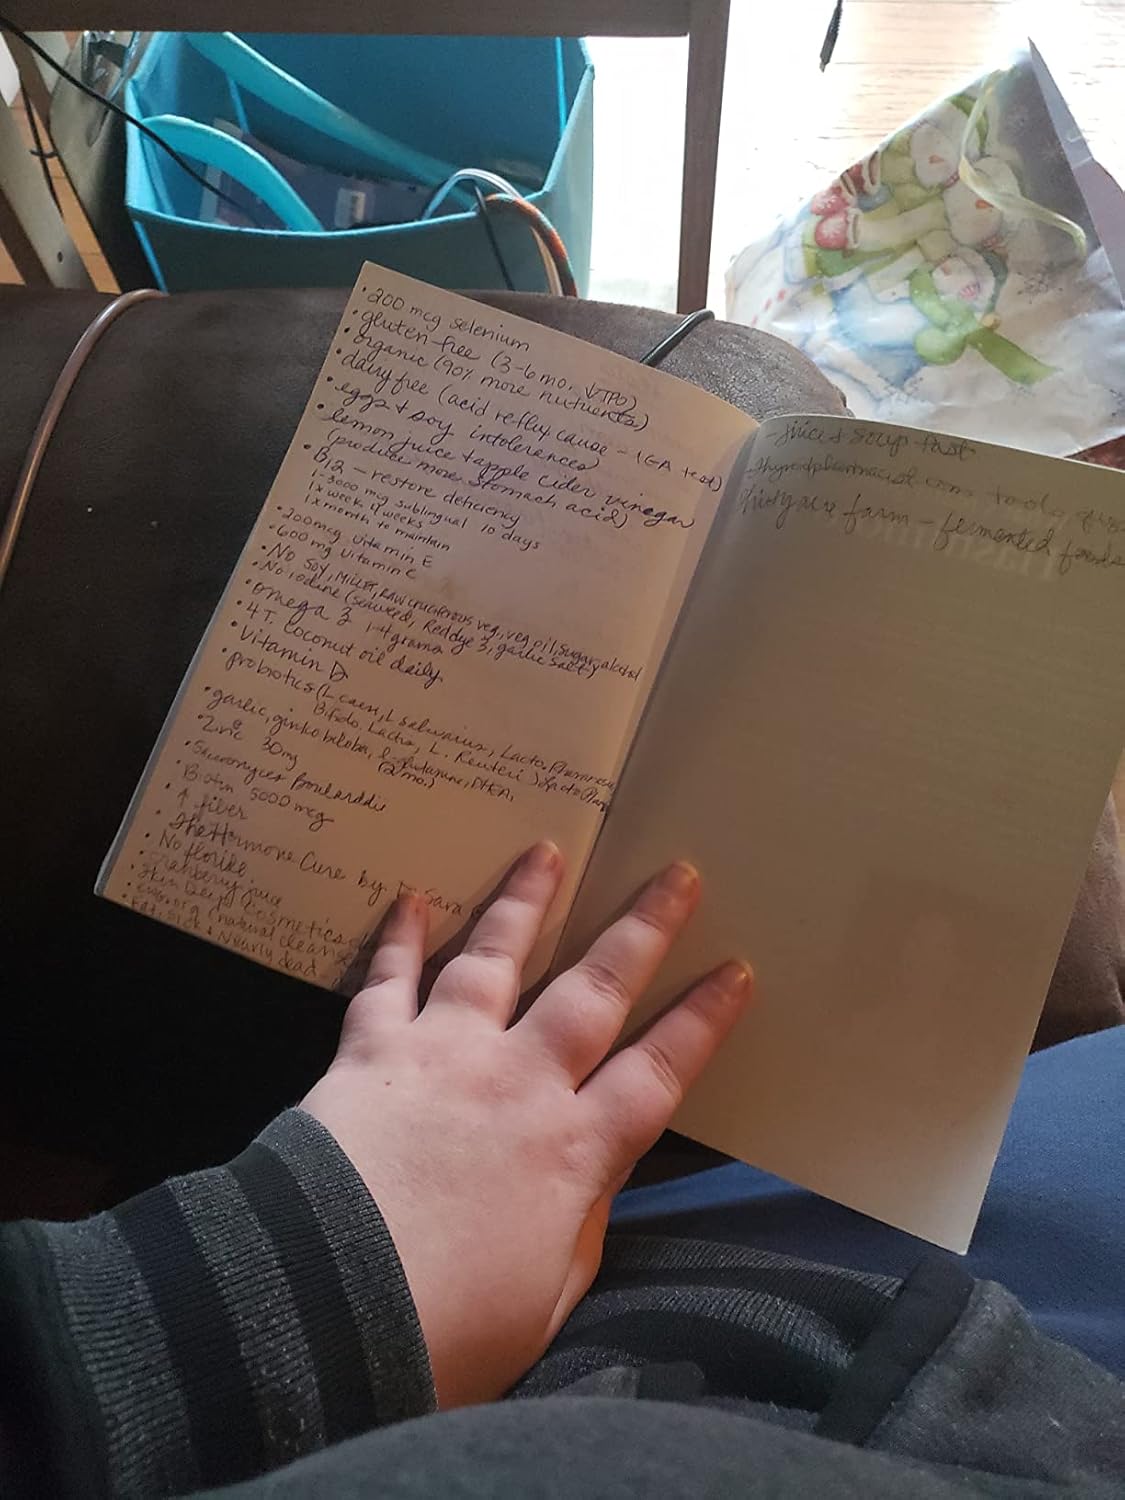 • 200 mcg selenium
• gluten-free (3-6 mo. ↓TPO)
• organic (90% more nutrients)
• dairy free (acid reflux cause - IGA test)
• eggs + soy intolerences)
• lemon juice + apple cider vinegar
(produce more stomach acid)
• B12 - restore deficiency
1-3000 mcg sublingual 10 days
1x week 4 weeks
1x month to maintain
• 200mcg vitamin E
• 600mg vitamin C
• No soy, Millet, Raw cruciferous veg., veg oil, sugar, alcohol
• No iodine (seaweed, Red dye 3, garlic salt)
• omega 3 1-4 grams
• 4 T. coconut oil daily
• Vitamin D
• probiotics (L casei, L salivarius, Lacto.
Bifido. Lactis, L. Reuteri)
• garlic, ginko biloba, l-glutamine, DHEA,
(2 mo.)
• Zinc 30mg
• Boularddii
• Biotin 5000 mcg
• ↑ fiber
• The Hormone Cure by Sara
• No floride
• cranberry juice
• Skin Deep Cosmetics
• ewg.org (natural
• Fat, Sick & Nearly dead
- juice & soup fast
- thyroidpharmacist.com
farm - fermented foods